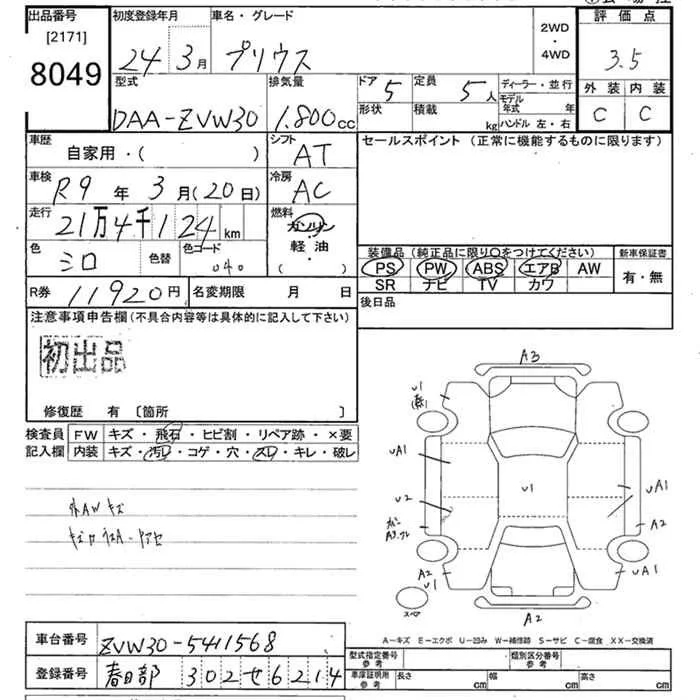 出品番号 初度登録年月 車名・グレード 評価点
[2171]
8049
24 3月 プリウス 2WD・4WD 3.5
型式 排気量 ドア 5 定員 5人 ディーラー・並行 外装 内装
DAA-ZVW30 1.800cc 形状 積載 kg モデル年式 年 C C
ハンドル 左・右
車歴 シフト セールスポイント (正常に機能するものに限ります)
自家用・( ) AT
車検 冷房
R9年 3月(20日) AC
走行 燃料
21万4千124km ガソリン・軽油
色 色替 色コード ( )
シロ 040
装備品 (純正品に限り○をつけてください) 新車保証書
PS PW ABS エアB AW 有・無
SR ナビ TV カワ
R券 11920円 名変期限 月 日
後日品
注意事項申告欄 (不具合内容等は具体的に記入して下さい)
初出品
修復歴 有 [箇所 ]
検査員 FW キズ・飛石・ヒビ割・リペア跡・×要
記入欄 内装 キズ・汚レ・コゲ・穴・スレ・キレ・破レ
外AWキズ
A3
U1
UA1
U2
U1
UA1
A2
A2
UA1
A2
スペア
A-キズ E-エクボ U-凹み W-補修跡 S-サビ C-腐食 XX-交換済
車台番号 ZVW30-5411568
登録番号 春日部 302 せ 6214
型式指定番号 参考 類別区分番号 参考
車庫証明用 参考 長さ cm 幅 cm 高さ cm